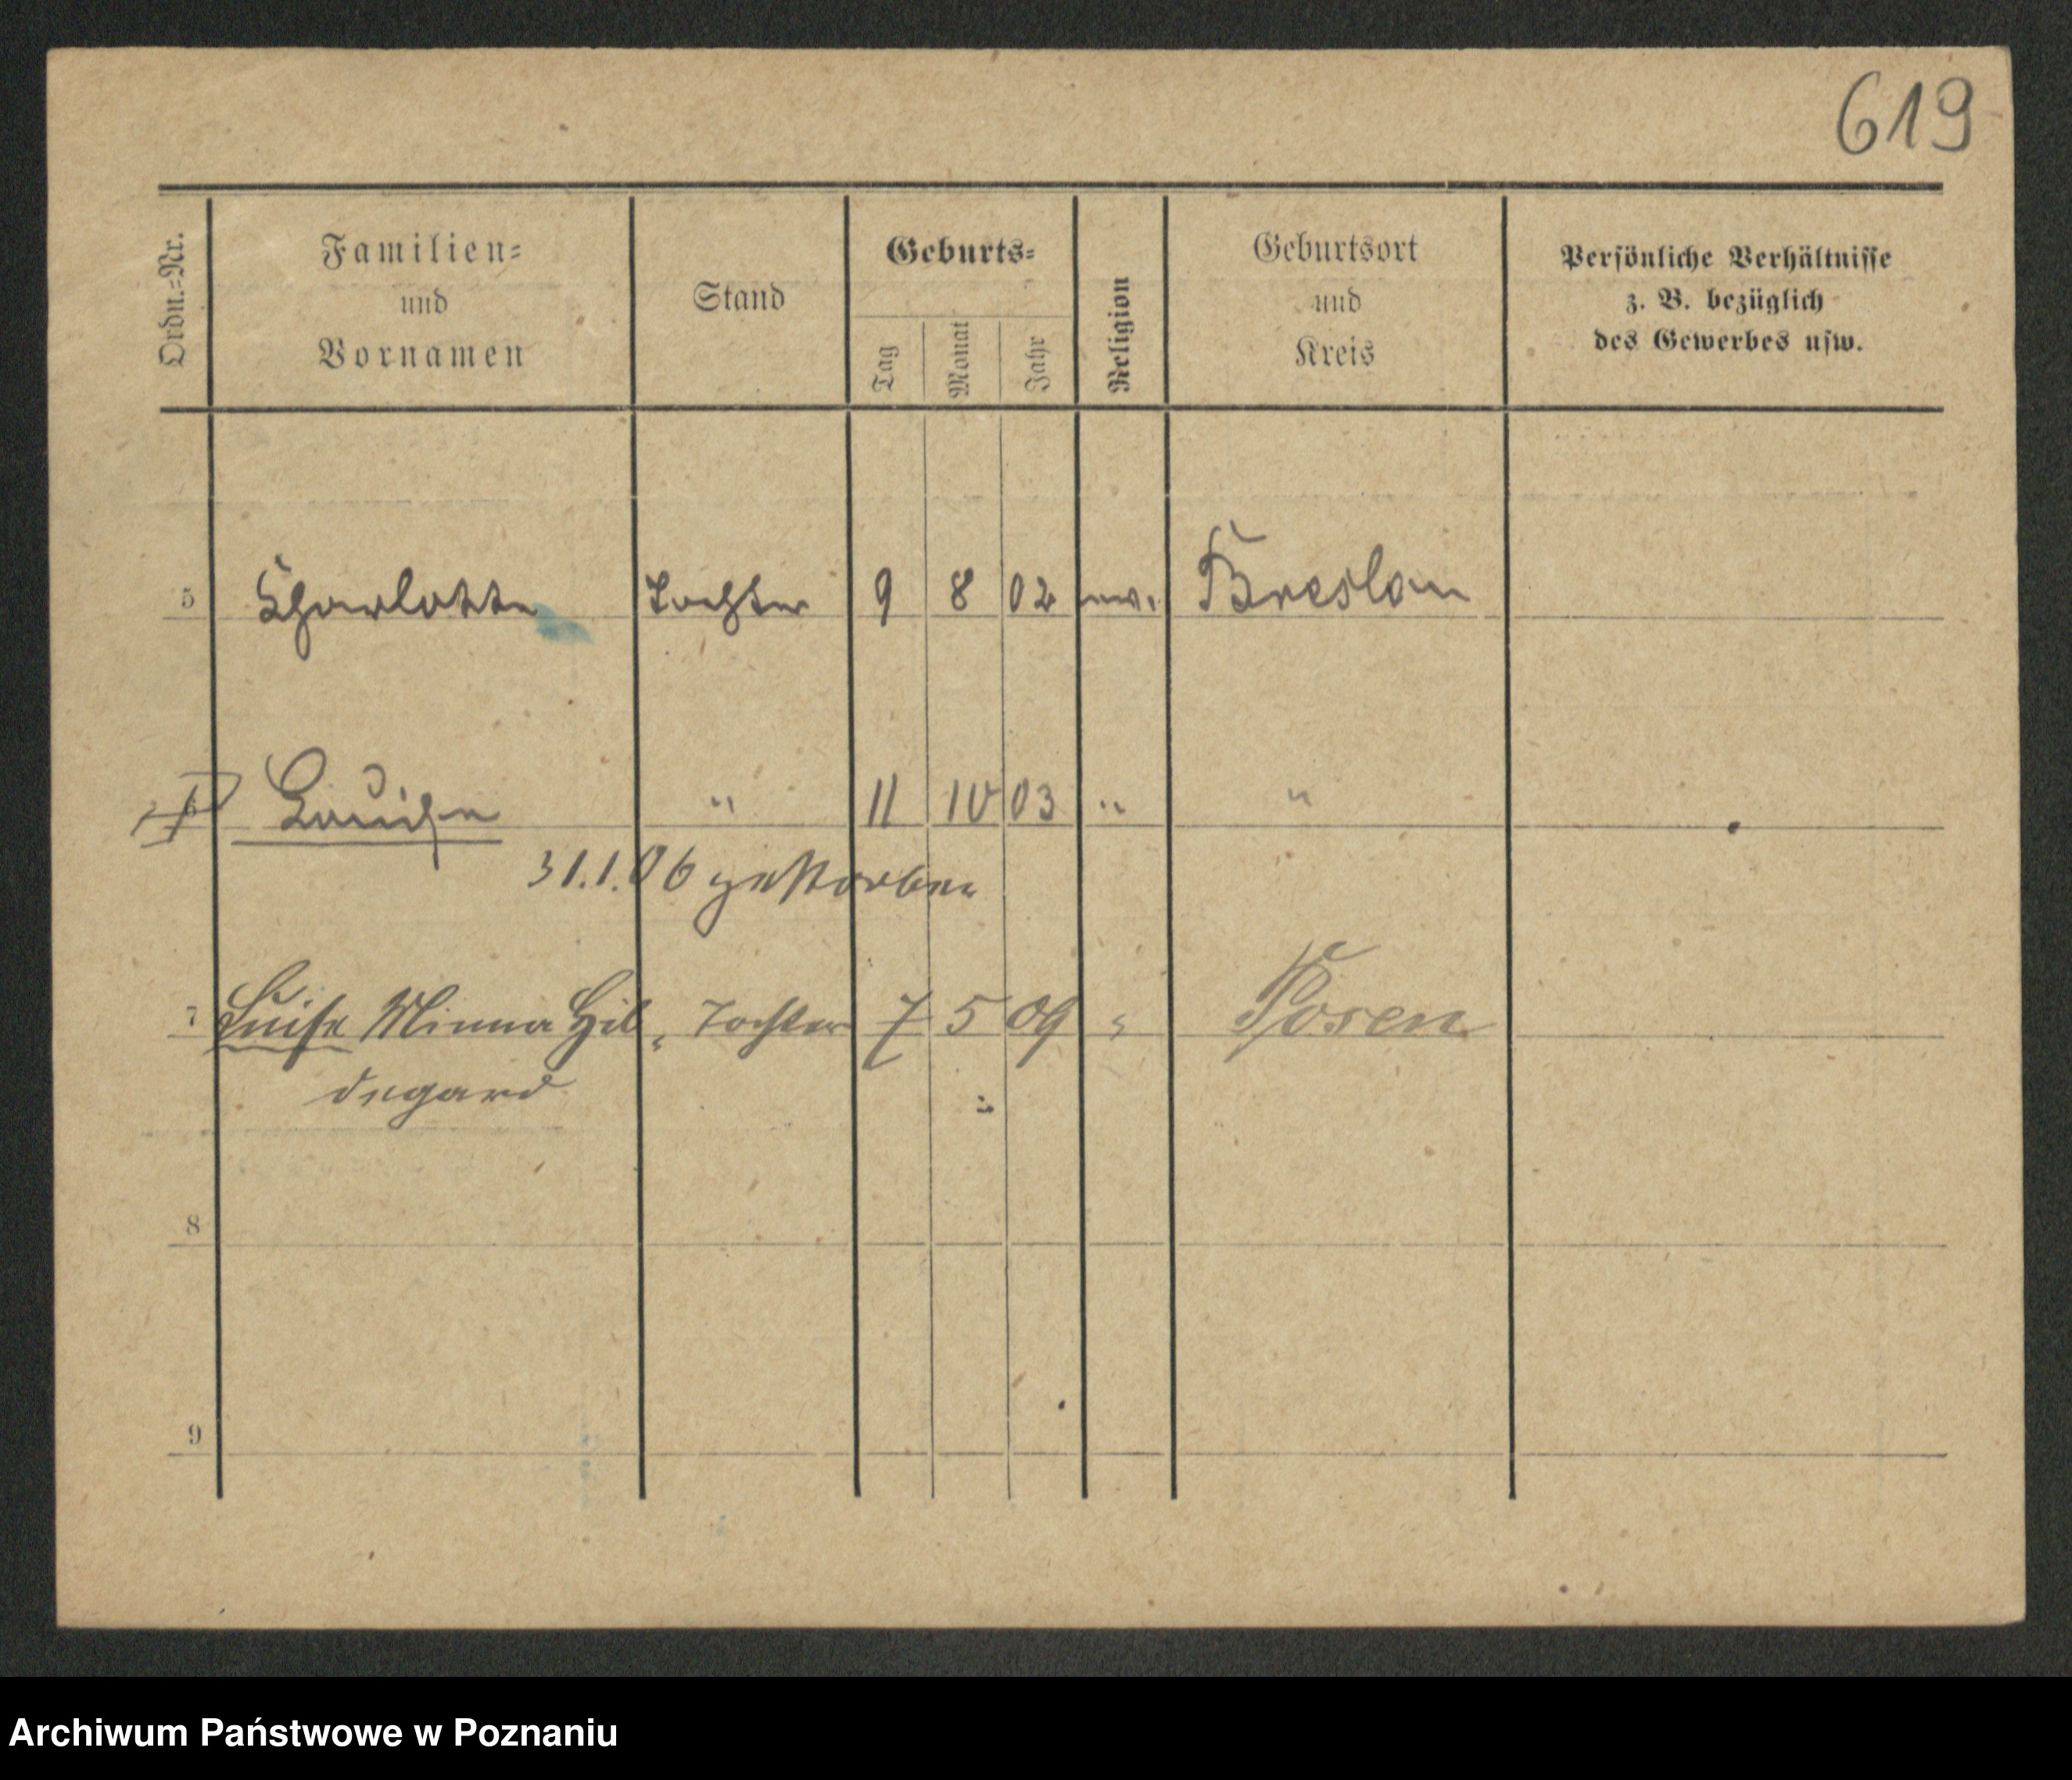 619
Ordn.-Nr.
Familien-
und
Vornamen
Stand
Geburts-
Tag
Monat
Jahr
Religion
Geburtsort
und
Kreis
Persönliche Verhältnisse
z. B. bezüglich
des Gewerbes usw.
5 Charlotte Tochter 9 8 02 ev. Breslau
6 Louise " 11 10 03 " "
31.1.06 gestorben
7 Luise Minna Hil- Tochter 7 5 09 " Posen
degard
8
9
Archiwum Państwowe w Poznaniu